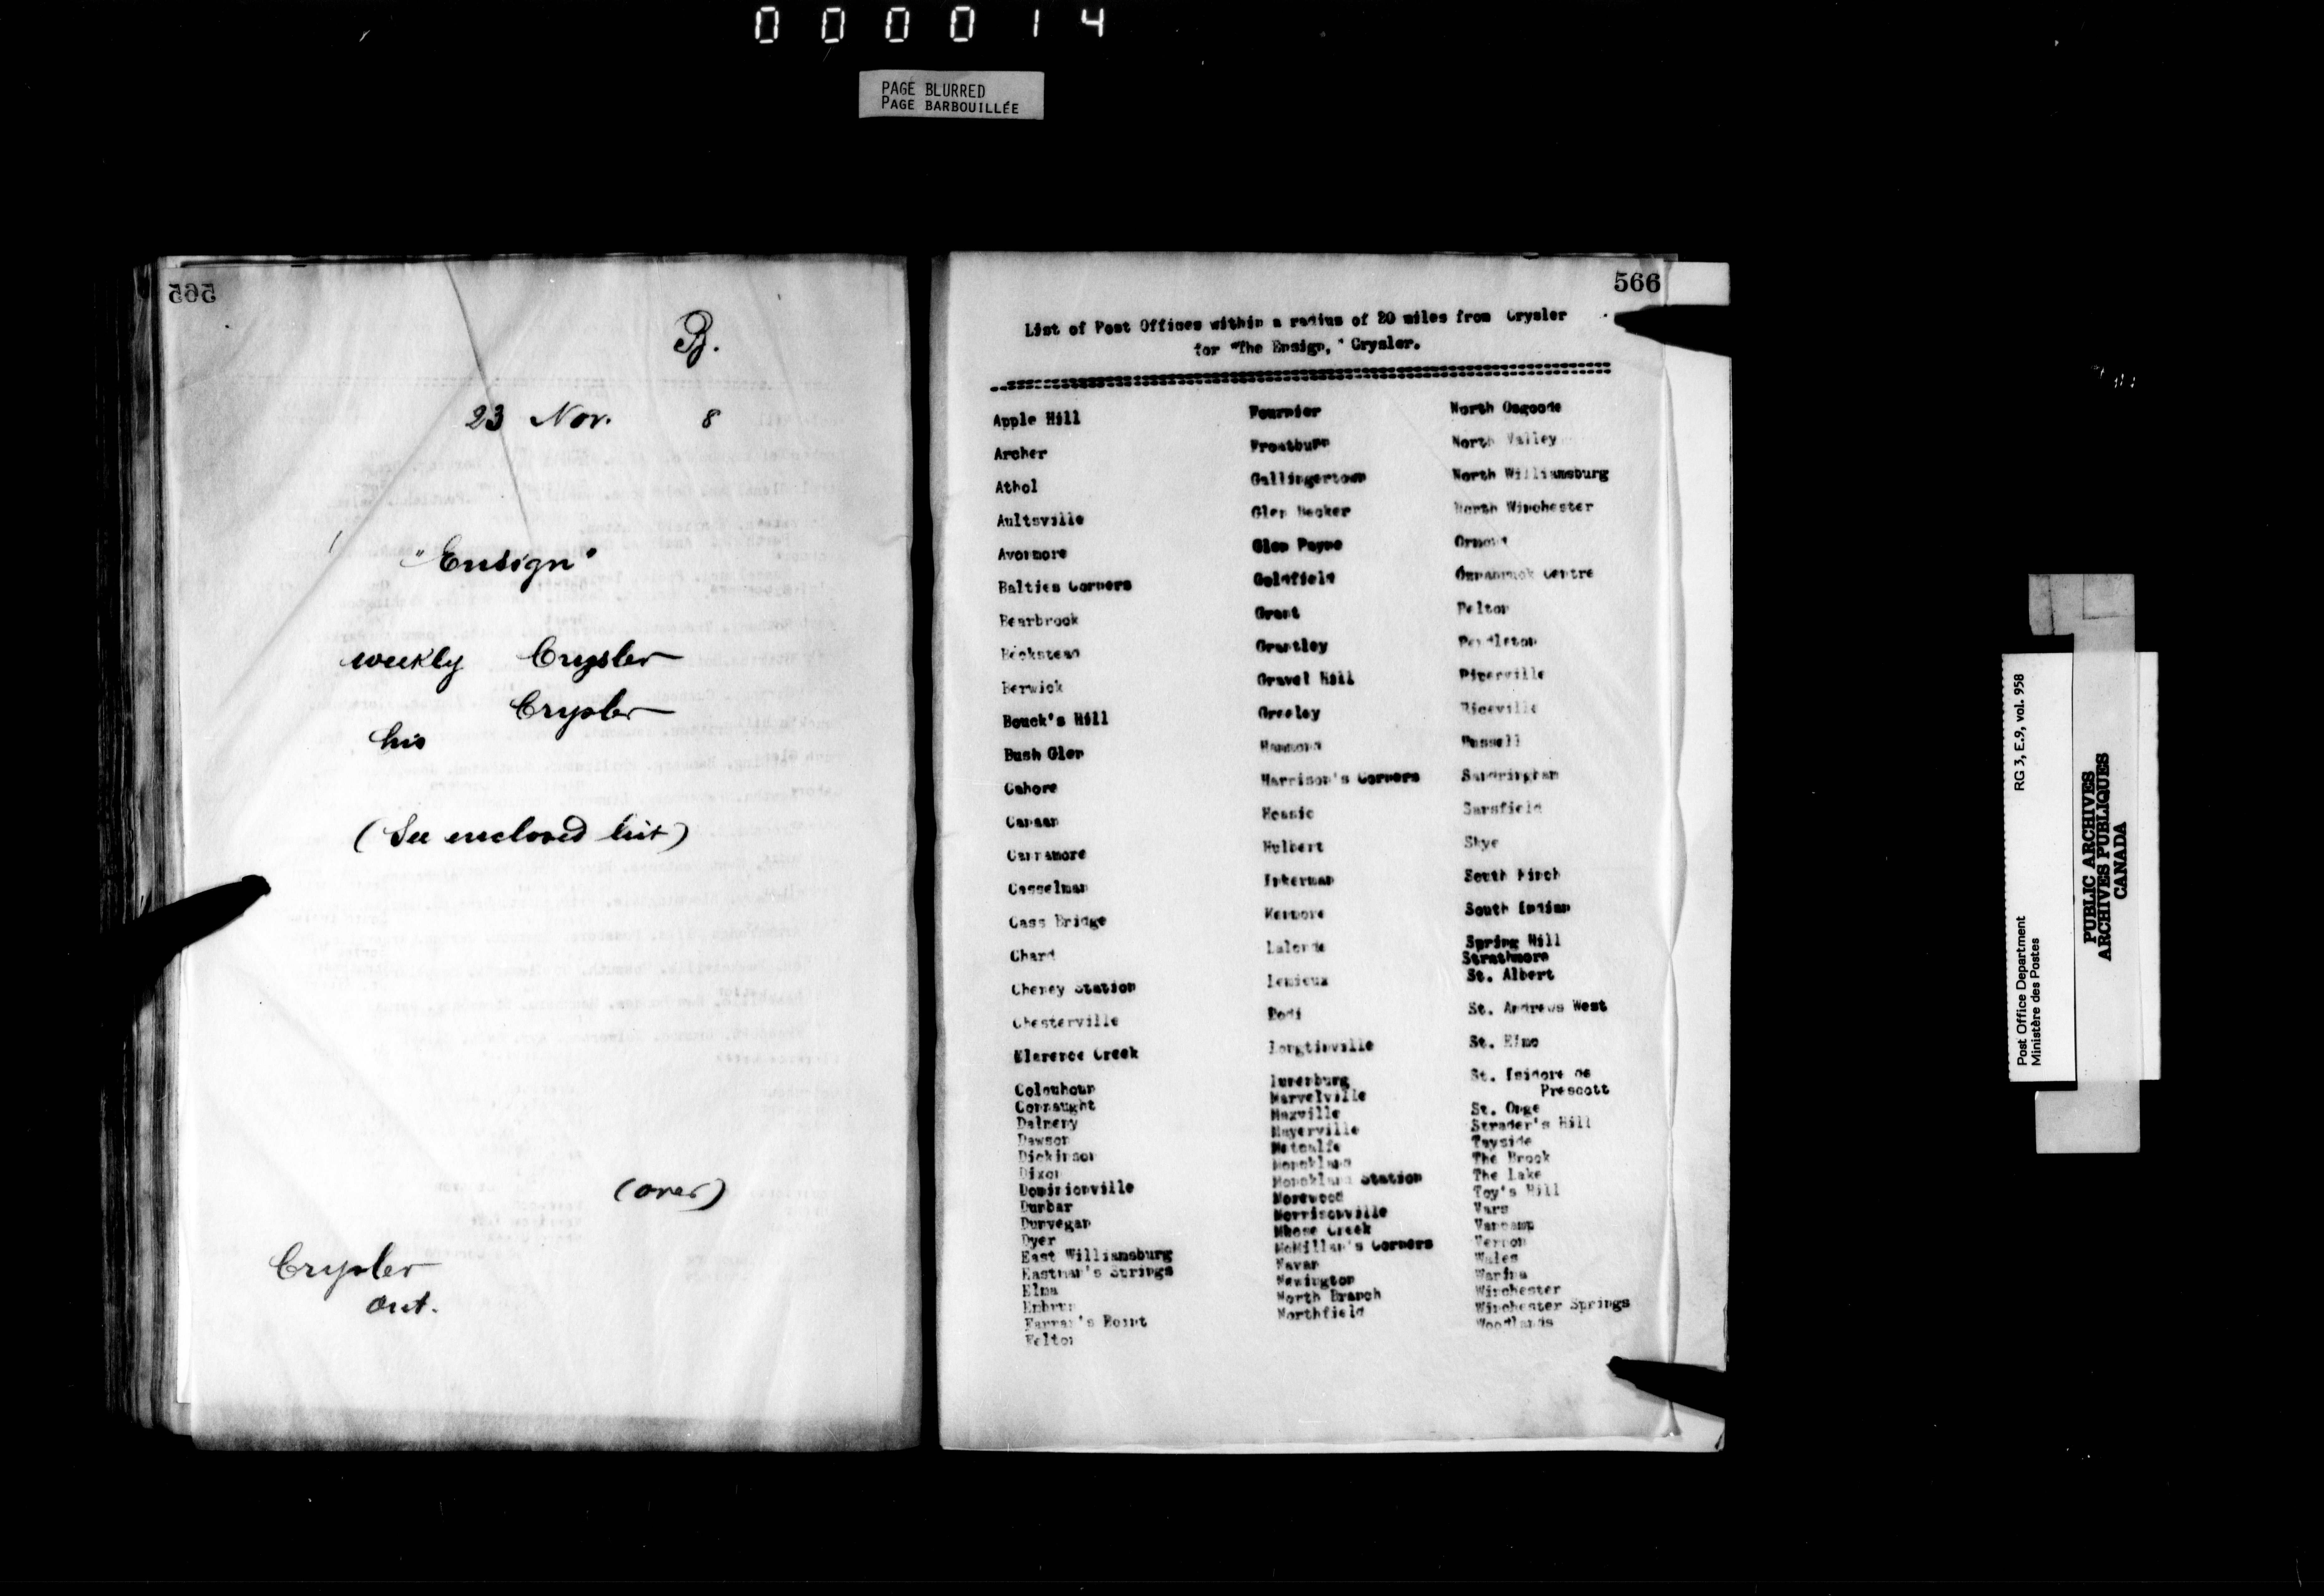 000014
PAGE BLURRED
PAGE BARBOUILLÉE
565
B.
23 Nov. 8
"Ensign"
weekly Crysler
Crysler
his
(See enclosed list)
(over)
Crysler
Ont.
566
List of Post Offices within a radius of 20 miles from Crysler
for "The Ensign," Crysler.
Apple Hill
Archer
Athol
Aultsville
Avonmore
Balties Corners
Bearbrook
Beckstead
Berwick
Bouck's Hill
Bush Glen
Cahore
Canaan
Cannamore
Casselman
Cass Bridge
Chard
Cheney Station
Chesterville
Clarence Creek
Colquhoun
Connaught
Dalmeny
Dawson
Dickinson
Dixon
Dominionville
Dunbar
Dunvegan
Dyer
East Williamsburg
Eastman's Springs
Elma
Embrun
Farran's Point
Felton
Fournier
Froatburn
Gallingertown
Glen Becker
Glen Payne
Goldfield
Grant
Grantley
Gravel Hill
Greeley
Hammond
Harrison's Corners
Hoasic
Hulbert
Inkerman
Kenmore
Lalonde
Lemieux
Lodi
Longtinville
Lunenburg
Marvelville
Maxville
Mayerville
Metcalfe
Monckland
Monckland Station
Morewood
Morrisonville
Moose Creek
McMillan's Corners
Navan
Newington
North Branch
Northfield
North Osgoode
North Valley
North Williamsburg
North Winchester
Ormond
Osnabruck Centre
Pelton
Pendleton
Piperville
Riceville
Russell
Sandringham
Sarsfield
Skye
South Finch
South Indian
Spring Hill
Strathmore
St. Albert
St. Andrews West
St. Elmo
St. Isidore de
Prescott
St. Onge
Strader's Hill
Tayside
The Brook
The Lake
Toy's Hill
Vars
Vancamp
Vernon
Wales
Warina
Winchester
Winchester Springs
Woodlands
Post Office Department
Ministère des Postes
RG 3, E.9, vol. 958
PUBLIC ARCHIVES
ARCHIVES PUBLIQUES
CANADA